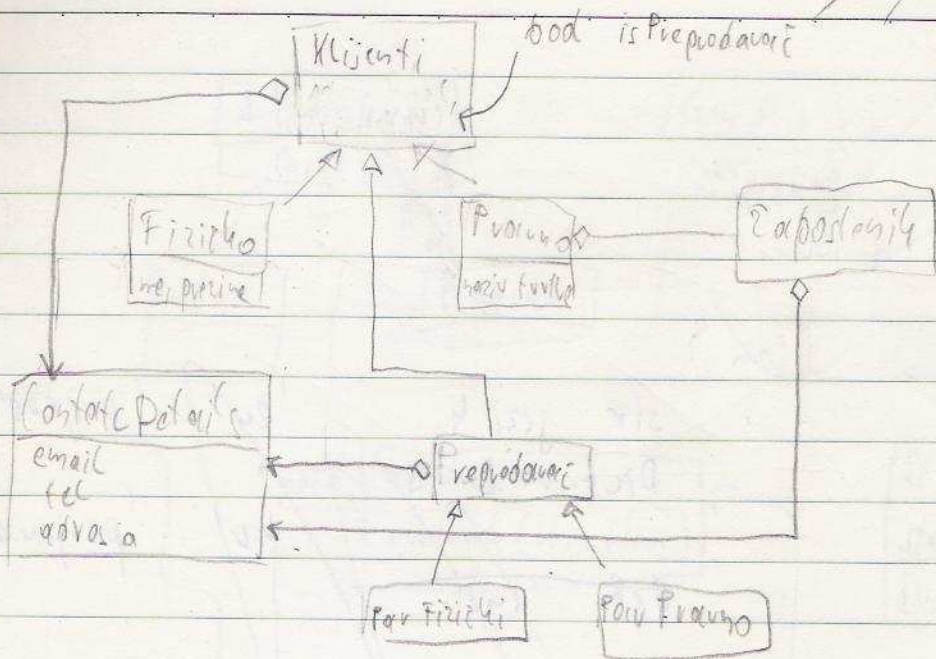 Klijenti
bod isPreprodavač
Fizičko
ime, prezime
Pravno
naziv tvrtke
Zaposlenik
Contatc Details
email
tel
adresa
Preprodavač
Par Fizički
Par Pravno